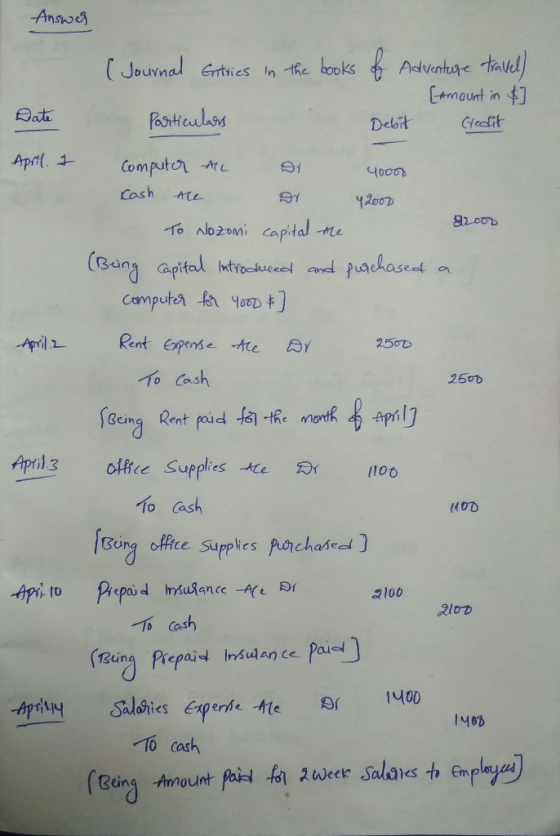 Answer
(Journal Entries in the books of Adventure travel)
[Amount in $]
Date Particulars Debit Credit
April. 1 Computer A/c Dr 40000
Cash A/c Dr 42000
To Nozomi capital A/c 82000
(Being capital Introduced and purchased a
computer for 4000 $]
April.2 Rent Expense A/c Dr 2500
To Cash 2500
[Being Rent paid for the month of April]
April.3 Office Supplies A/c Dr 1100
To Cash 1100
[Being office supplies purchased]
April.10 Prepaid Insurance A/c Dr 2100
2100
To Cash
(Being Prepaid Insurance paid]
April.14 Salaries Expense A/c Dr 1400
1400
To Cash
(Being Amount paid for 2 week Salaries to Employees]